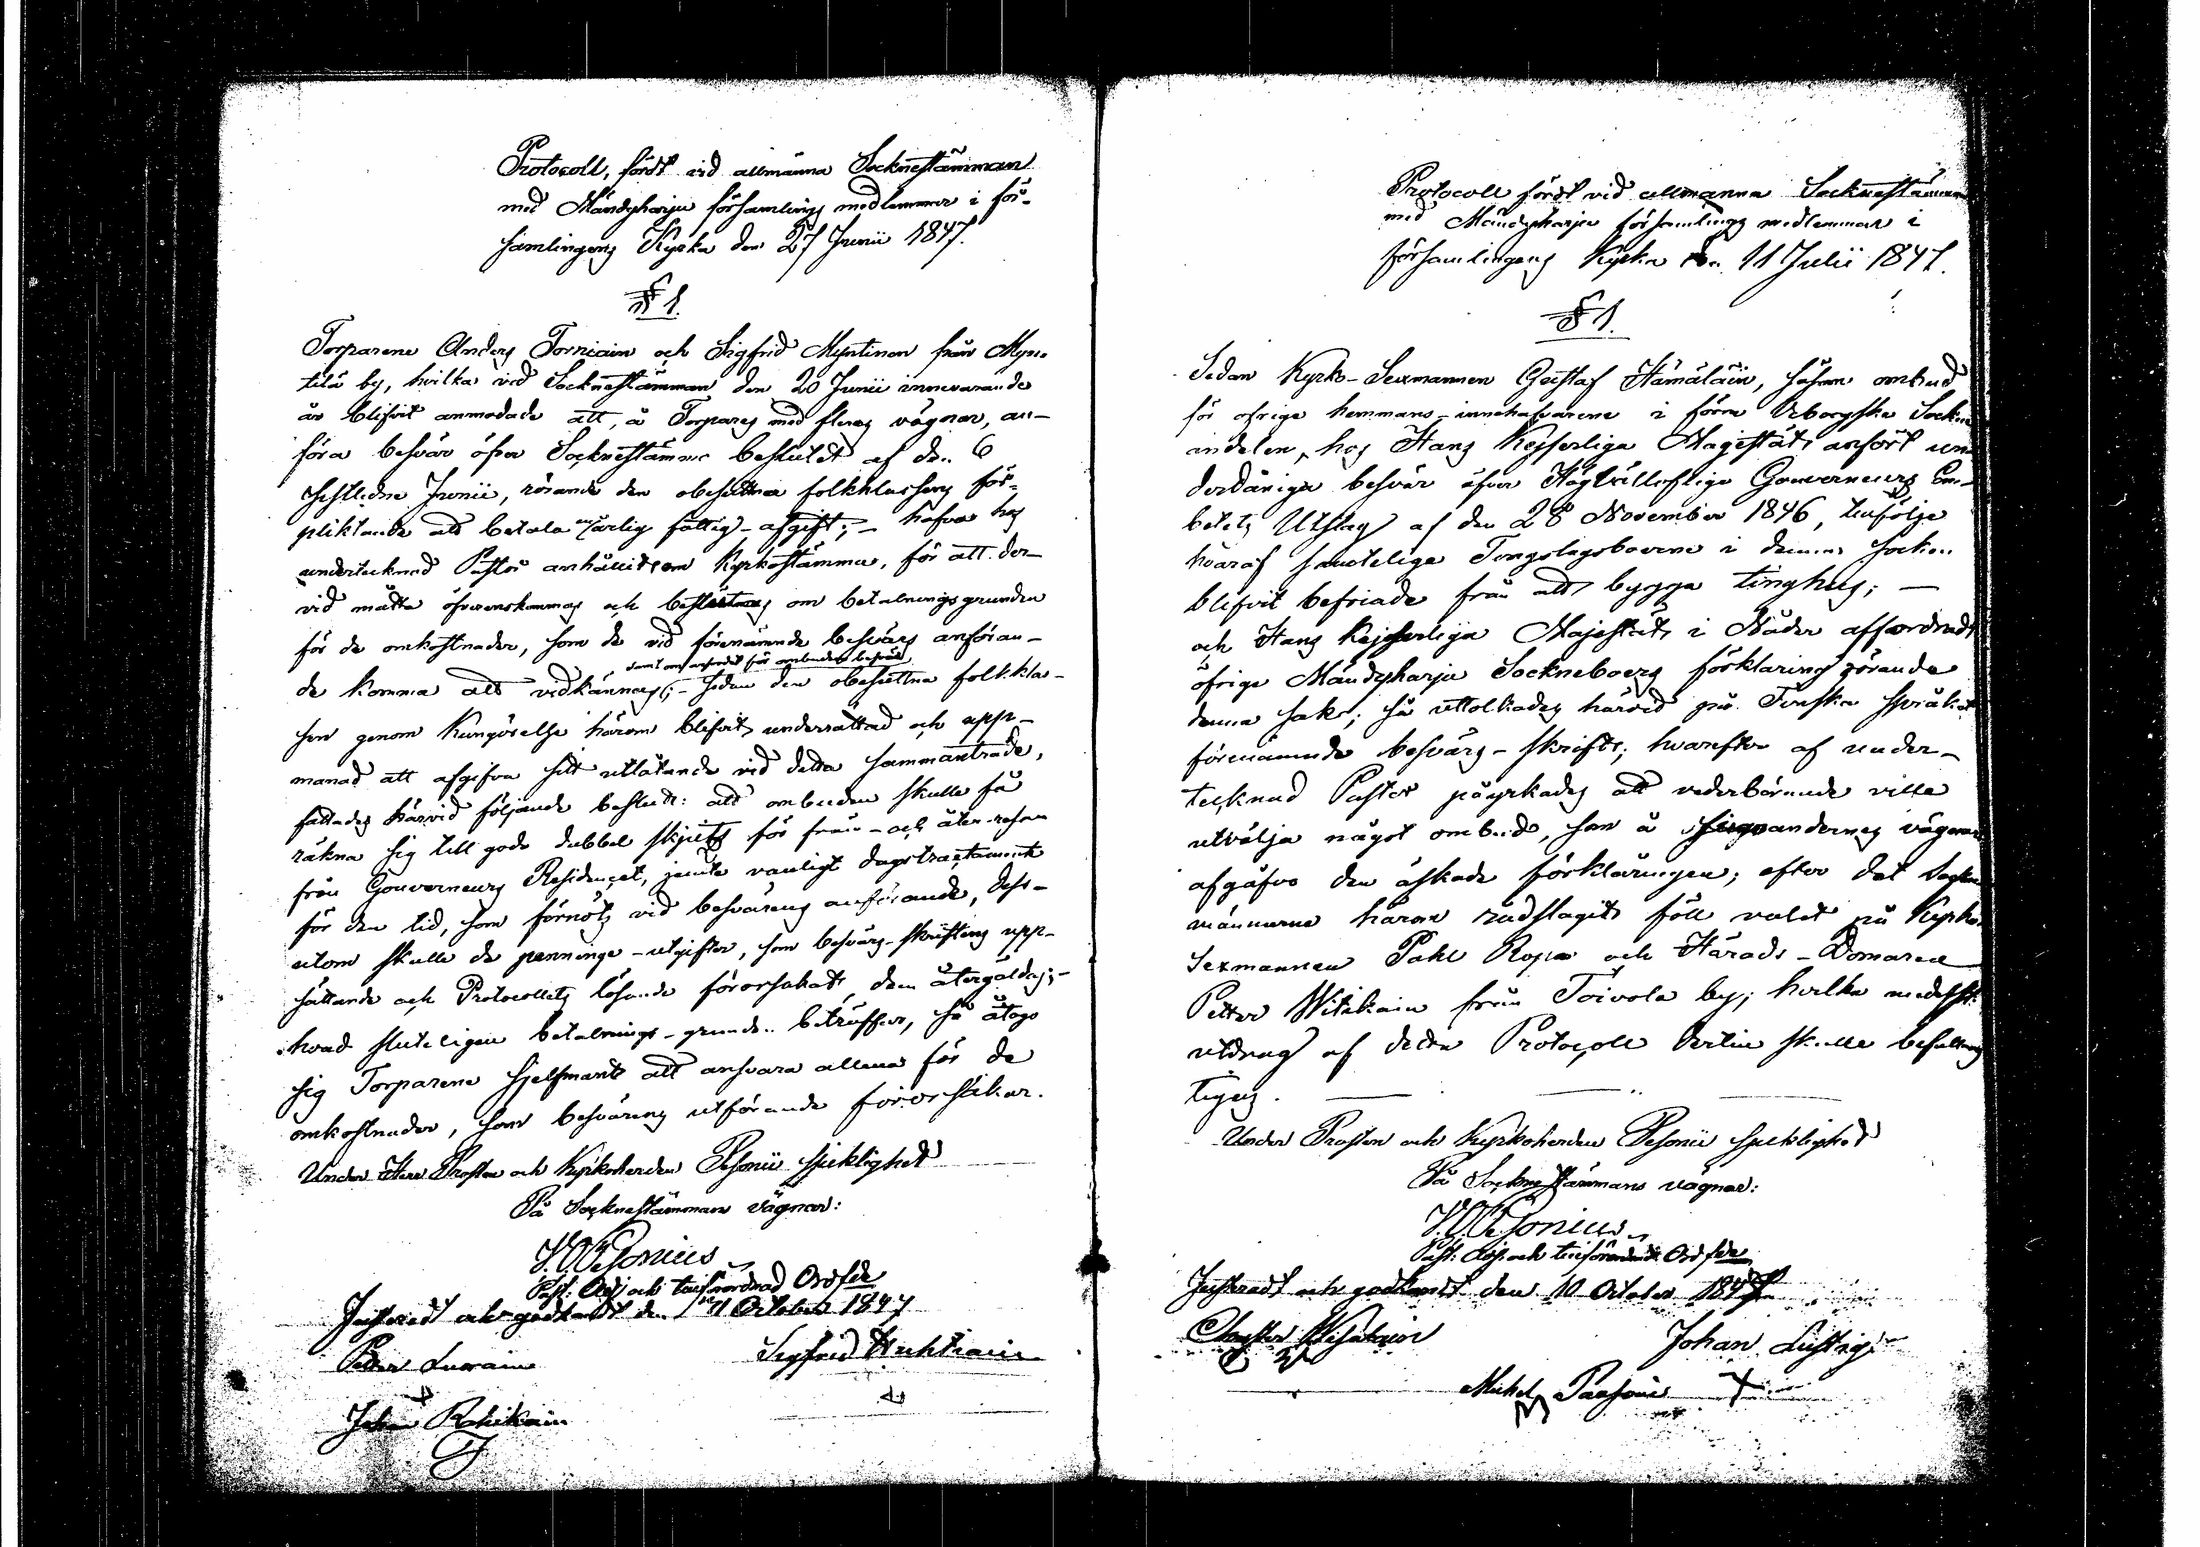 Protocoll, fördt vid allmänna Socknestämman
med Mändyharju församlings medlemmar i för-
samlingens Kyrka den 27 Junii 1847.
§ 1.
Torparene Anders Torniain och Sigfrid Myntinen från Myn-
tilä by, hvilka vid Socknestämman den 20 Junii innevarande
år blifvit anmodade att, å Torpares med fleras vägnar, an-
föra besvär öfver Socknestämmo beslutet af den 6
sistledne Junii, rörande den obesuttna folkklassens för-
pliktande att betala en årlig fattig-afgift; - hafva hos
undertecknad Pastor anhållit om Kyrkostämma, för att der-
vid måtte öfverenskommas och beslutas om betalningsgrunden
för de omkostnader, som de vid förenämnde besvärs anföran-
de komma att vidkännas; - sedan den obesuttna folkklas-
sen genom kungörelse härom blifvit underrättad och upp-
manad att afgifva sitt utlåtande vid detta sammanträde,
fattades härvid följande beslut: att ombuden skulle få
räkna sig till godo dubbel skjuts för fram- och åter-resan
från Gouverneurs Residencet, jemte vanligt dagstractamente
för den tid, som förnöts vid besvärens anförande, dess-
utom skulle de penninge-utgifter, som besvärs-skriftens upp-
sättande och Protocollets lösande förorsakat, dem återgäldas; -
hvad sluteligen betalnings-grunden beträffar, så åtogo
sig Torparene sjelfmant att ansvara allena för de
omkostnader, som besvärens utförande förorsakar.
Under Herr Prosten och Kyrkoherden Pesonii sjuklighet
På Socknestämmans vägnar:
Pesonius
Past: Adj och Ordfde
Justeradt och godkändt den 11 October 1847
Petter Lurain
Sigfrid Huhtiain
Johan Rahikain
Protocoll fördt vid allmänna Socknestämman
med Mändyharju församlings medlemmar i
församlingens Kyrka den 11 Julii 1847.
§ 1.
Sedan Kyrko-Sexmannen Gustaf Hämäläin, såsom ombud
för öfrige hemmans-innehafvarene i förra Wiborgska Sockne
andelen, hos Hans Kejserliga Majestät anfört un-
derdåniga besvär öfver Högvällofliga Gouverneurs Em-
betets Utslag af den 28 November 1846, tillfölje
hvaraf samtelige Tingslagsboerne i denna socken
blifvit befriade från att bygga tinghus; -
och Hans Kejserliga Majestät i Nåder affordradt
öfrige Mändyharju Sockneboers förklaring rörande
denna sak; så uttolkades härvid på Finska språket
förenämnde besvärs-skrift; hvarefter af under-
tecknad Pastor påyrkades att vederbörande ville
utvälja något ombud, som å vägnar
afgåfvo den äskade förklaringen; efter det Socken
männerne härom rådslagit föll valet på Kyrko-
Sexmannen Pahl Ropo och Härads-Domaren
Petter Witikain från Toivola by; hvilka medelst
utdrag af detta Protocoll skulle befullmäg-
tigas.
Under Prosten och Kyrkoherden Pesonii sjuklighet
På Socknestämmans vägnar:
Pesonius
Past: Adj. och Ordfde
Justeradt och godkändt den 10 October 1847
Johan Lustig
Michel Paasoin